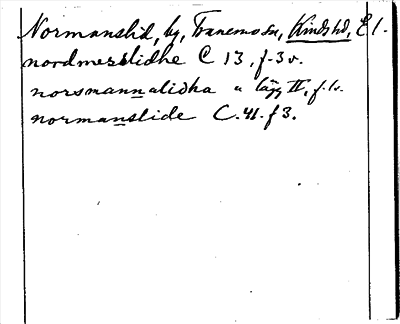 Normanslid, by, Tranemo sn, Kinds hd, E l.
nordmerslidhe C 13, f. 3 v.
norsmannalidha " lägg II, f. 1v.
normanslide C. 41. f 3.